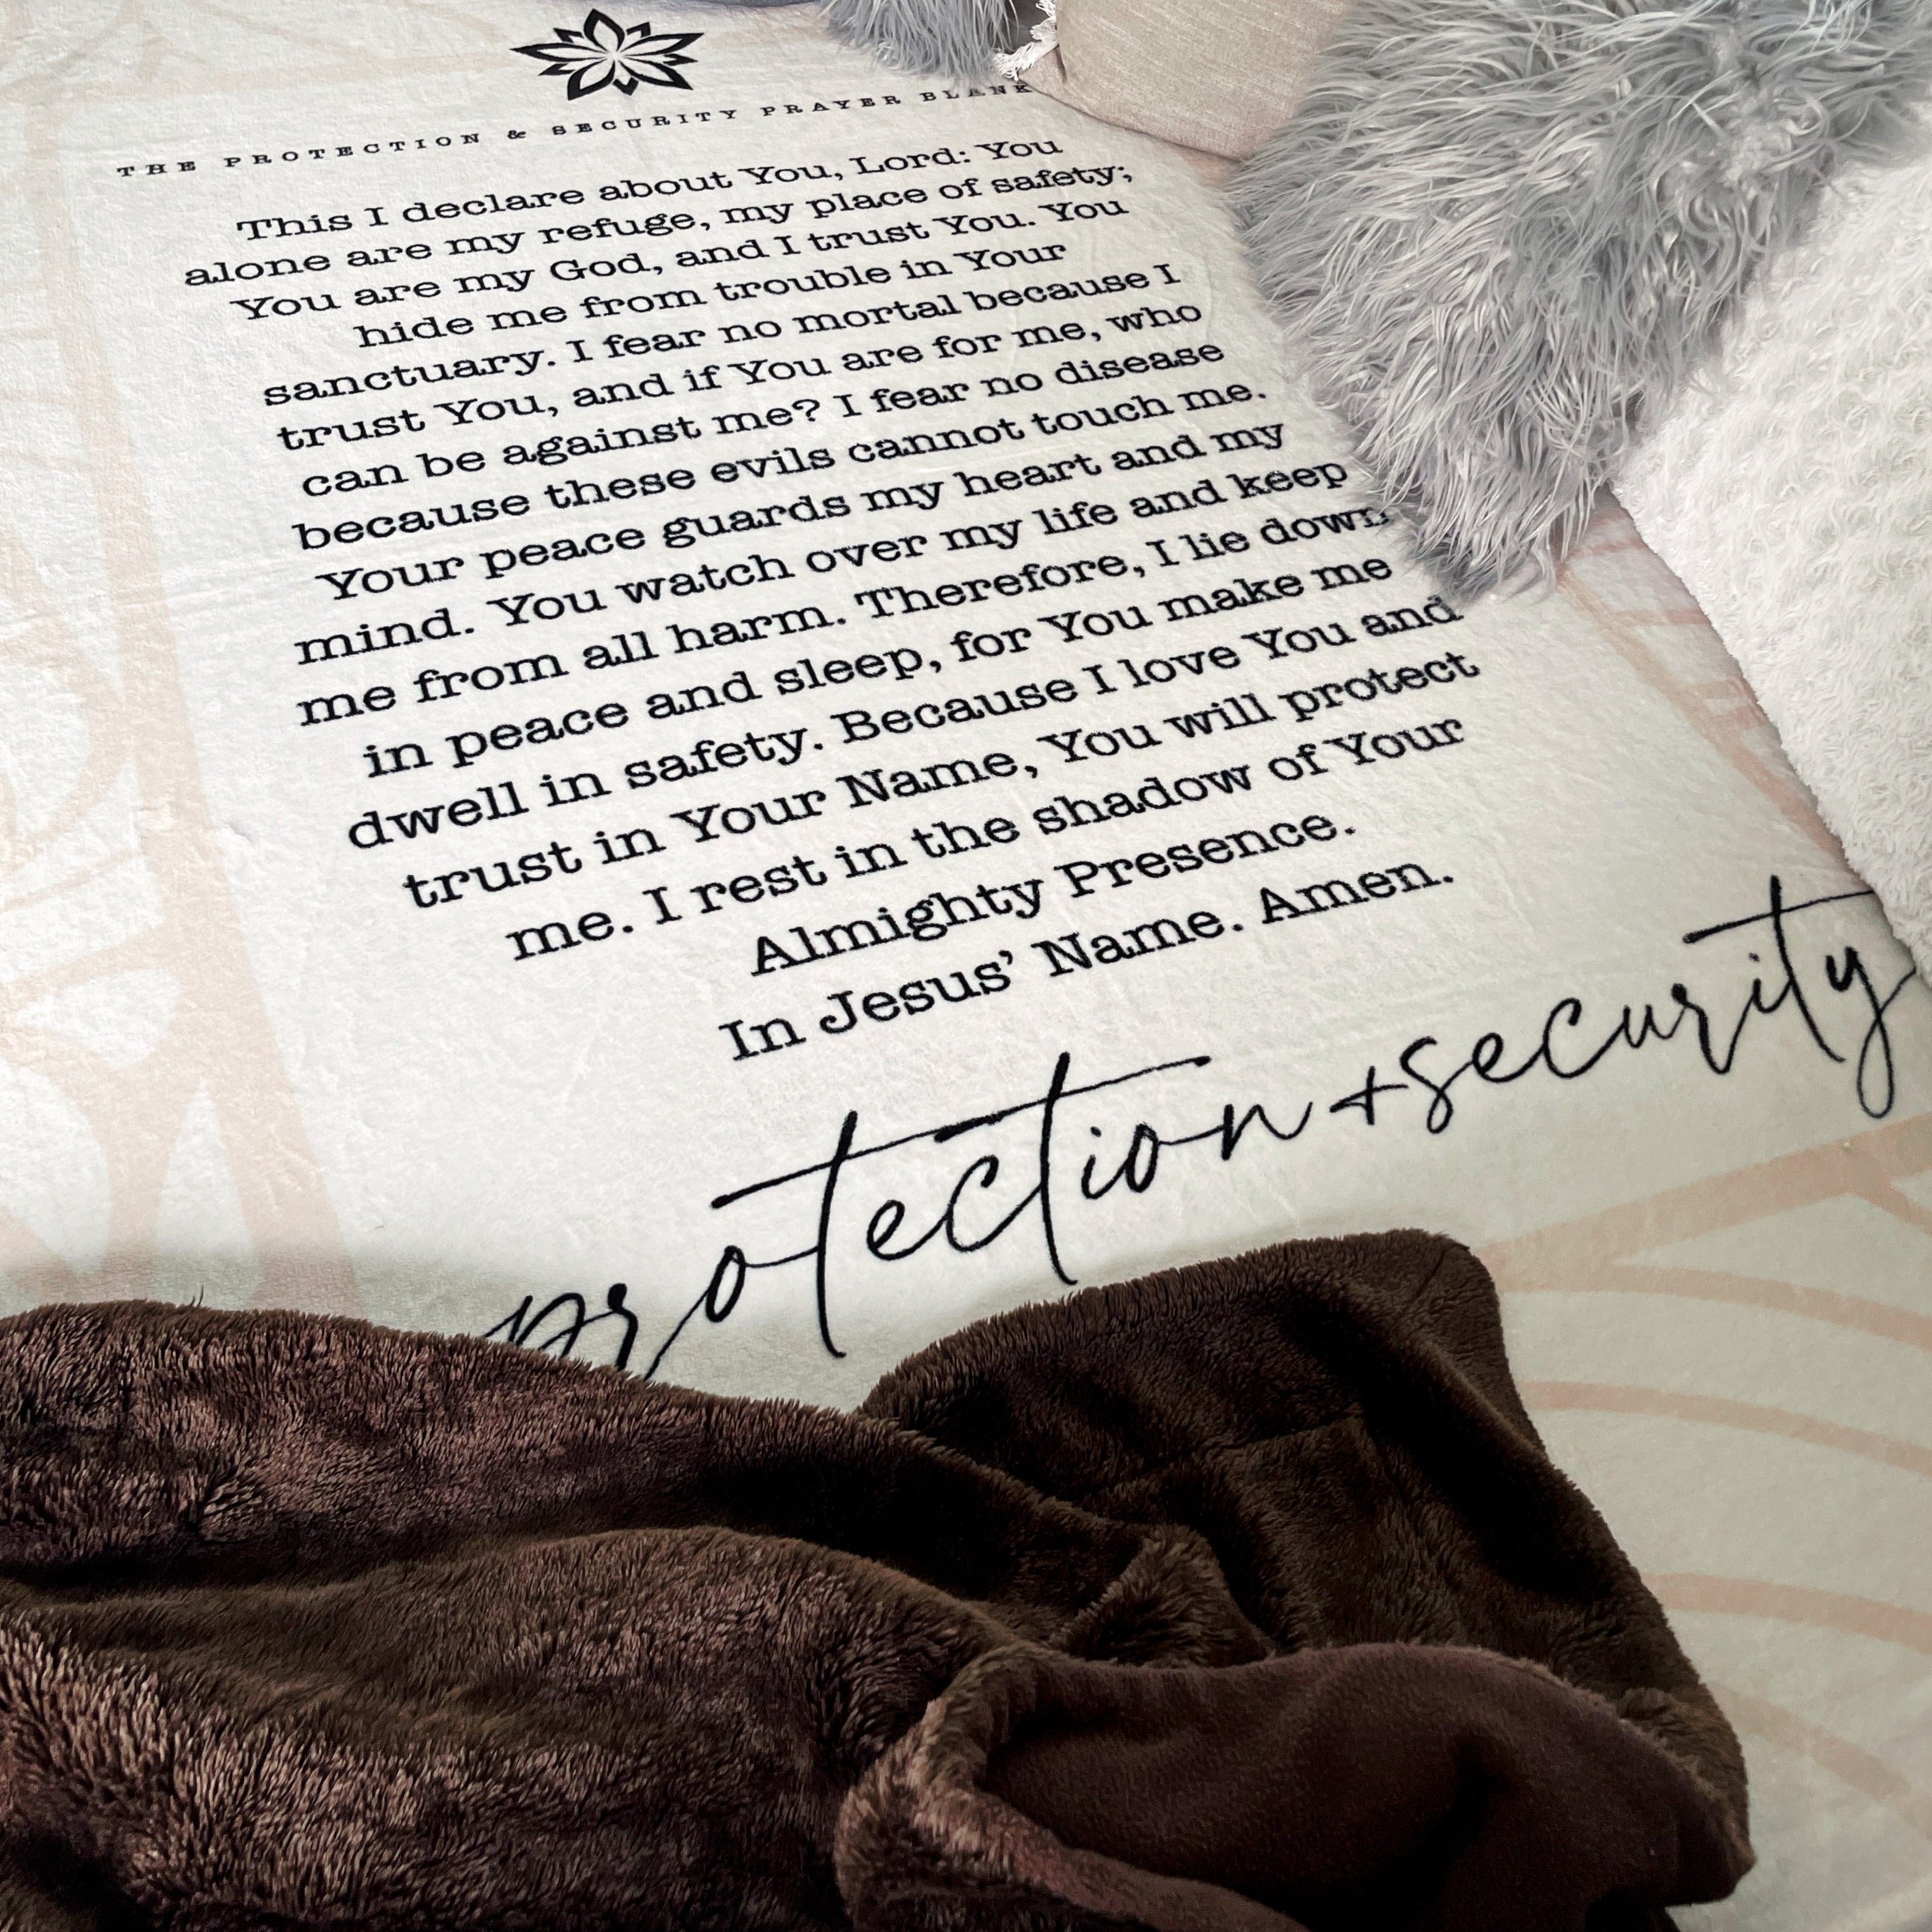 THE PROTECTION & SECURITY PRAYER BLANK
This I declare about You, Lord: You
alone are my refuge, my place of safety;
You are my God, and I trust You. You
hide me from trouble in Your
sanctuary. I fear no mortal because I
trust You, and if You are for me, who
can be against me? I fear no disease
because these evils cannot touch me.
Your peace guards my heart and my
mind. You watch over my life and keep
me from all harm. Therefore, I lie down
in peace and sleep, for You make me
dwell in safety. Because I love You and
trust in Your Name, You will protect
me. I rest in the shadow of Your
Almighty Presence.
In Jesus’ Name. Amen.
protection + security